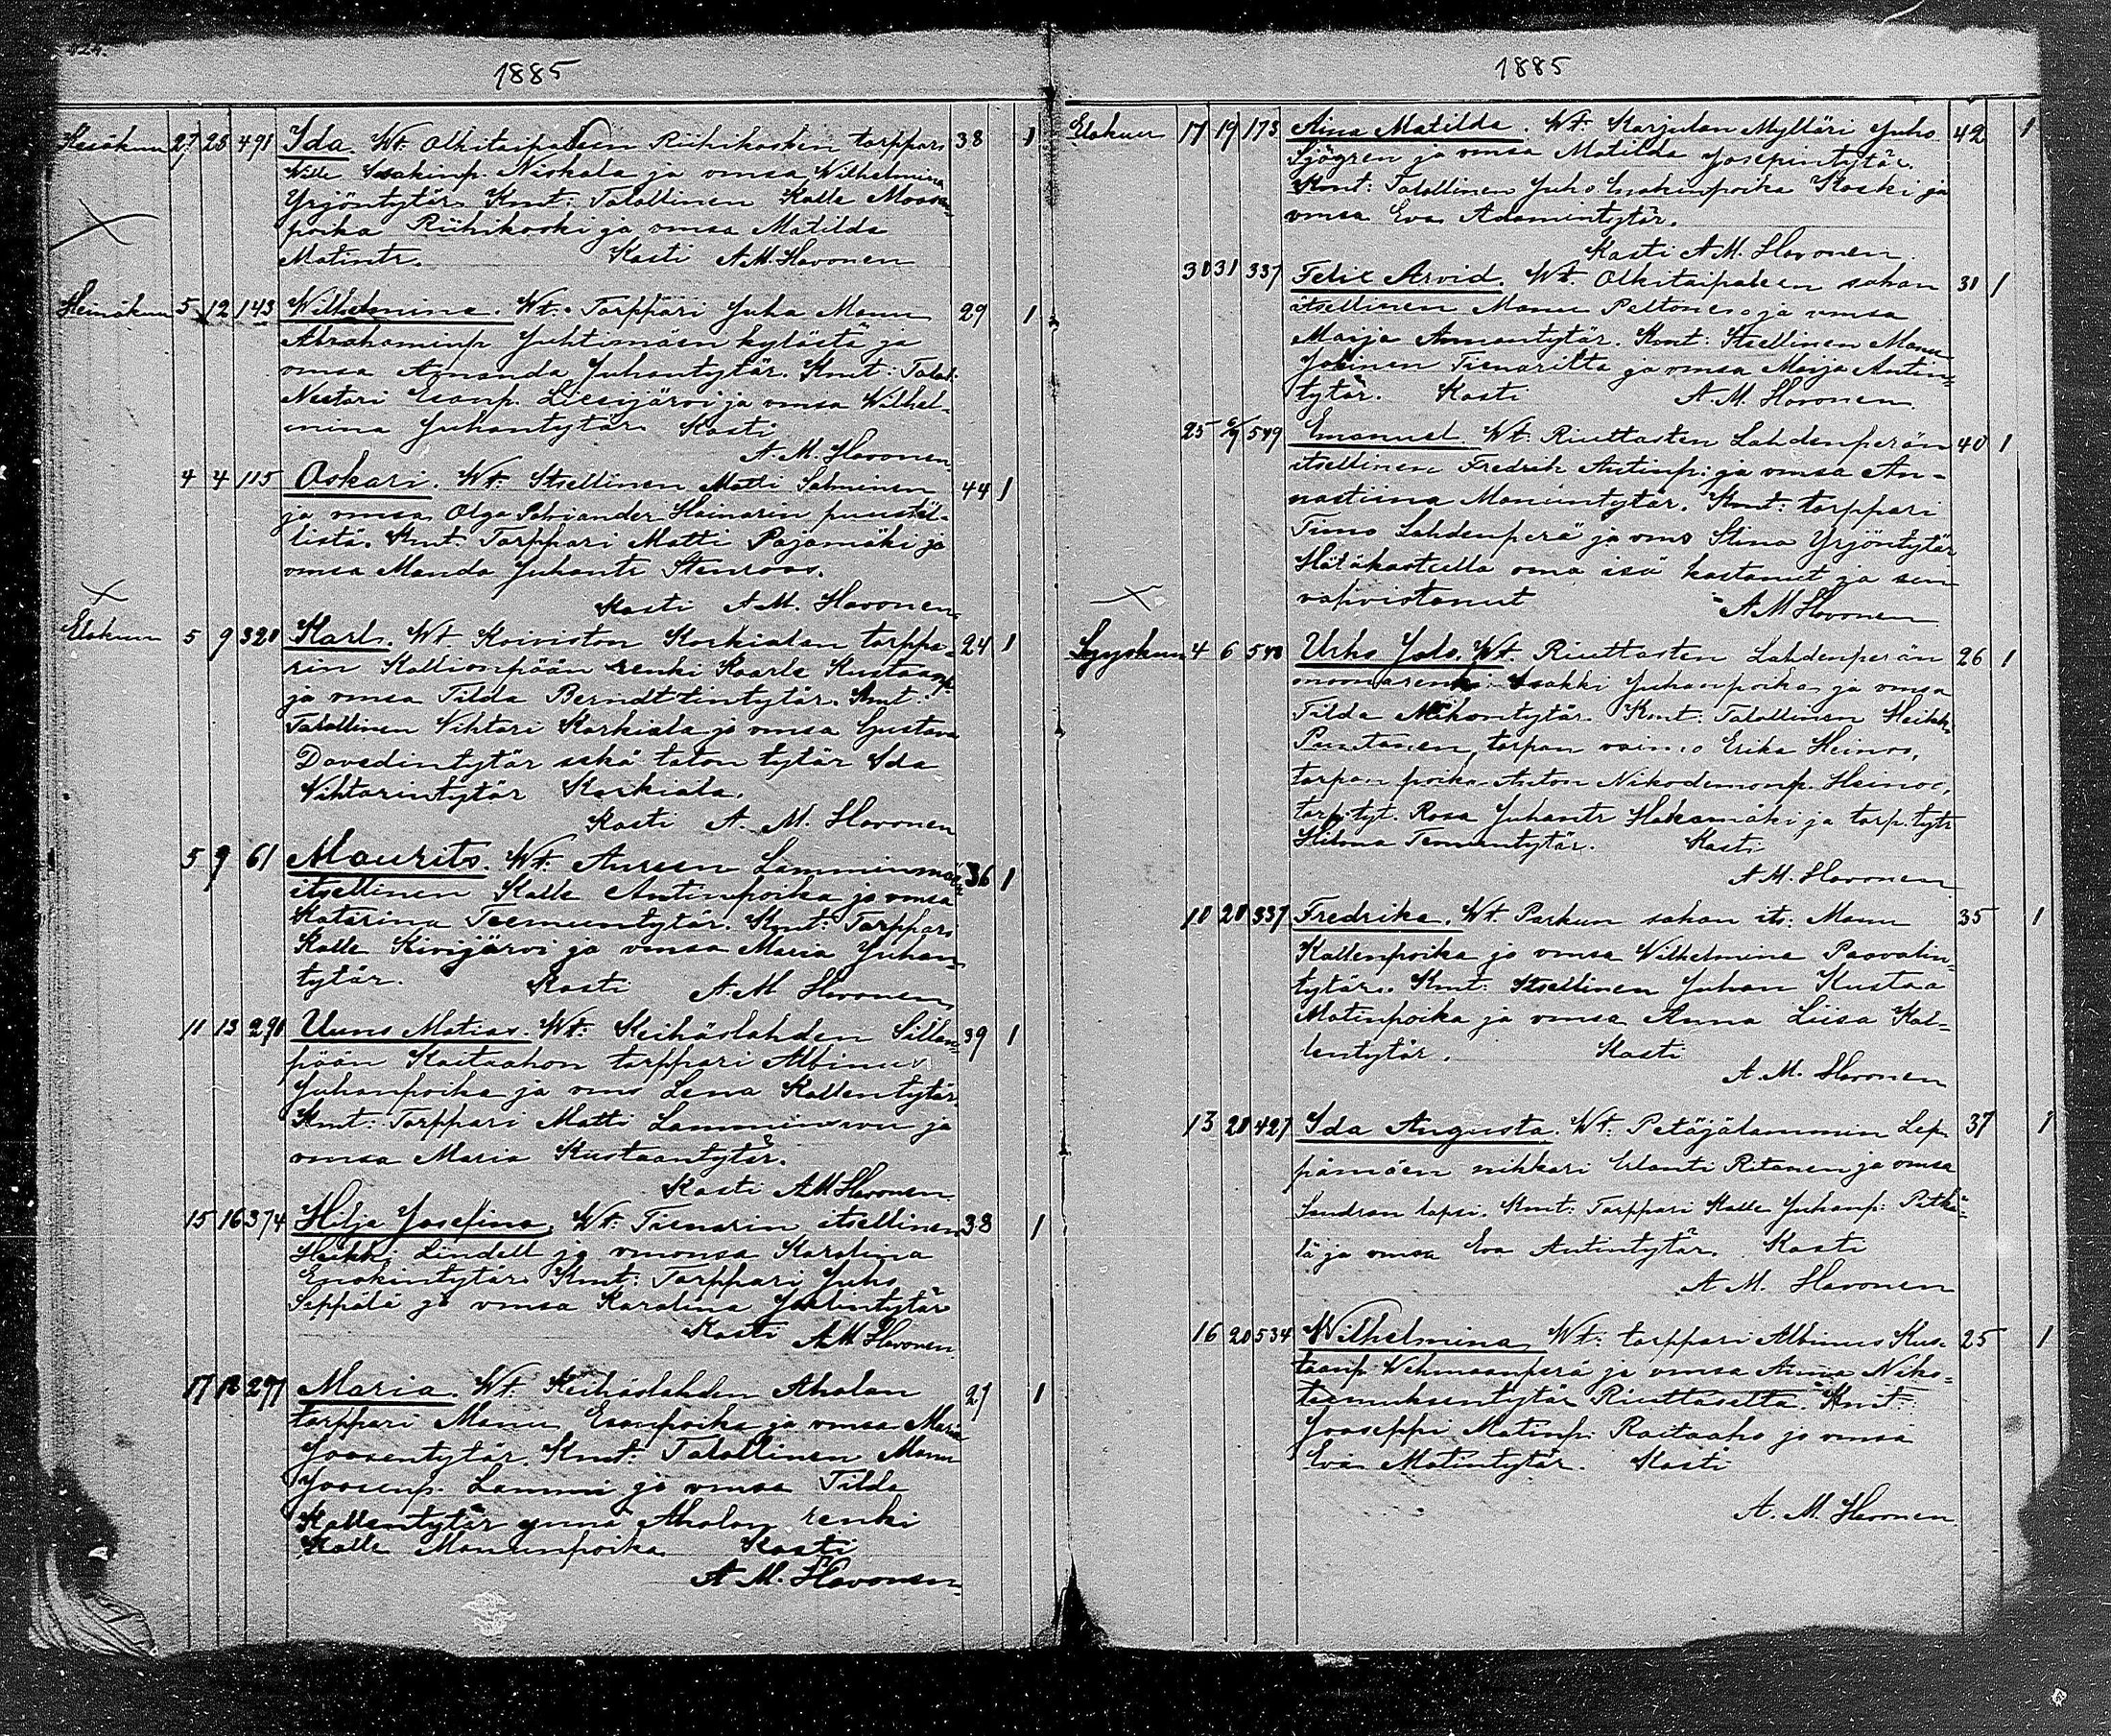 1885
Kesäkuu 27 28 491 Ida. Wt. Olkitaipaleen Riihikosken torppari 38 1
Wille Isakinp. Niskala ja vmsa Wilhelmina
Yrjöntytär. Kmt: Talollinen Kalle Moosen-
poika Riihikoski ja vmsa Matilda
Matintr. Kasti A.M. Havonen
Heinäkuu 5 12 143 Wilhelmina. Wt. Torppari Juha Manu 29 1
Abrahaminp Juhtimäen kylästä ja
vmsa Amanda Juhantytär. Kmt: Talol.
Nestori Esanp. Liesijärvi ja vmsa Wilhel-
mina Juhantytär Kasti
A. M. Havonen
4 4 115 Oskari. Wt. Itsellinen Matti Salminen 44 1
ja vmsa Olga Salviander Hainarin puustel-
lista. Kmt. Torppari Matti Pajamäki ja
vmsa Manda Juhantr Stenroos.
Kasti A.M. Havonen
Elokuu 5 9 320 Karl. Wt. Koiviston Korkialan torppa- 24 1
rin Kallionpään renki Kaarle Kustaanp
ja vmsa Tilda Berndttintytär. Kmt:
Talollinen Vihtori Korkiala ja vmsa Gustava
Davedintytär sekä talon tytär Ida
Vihtorintytär Korkiala.
Kasti A. M. Havonen
5 9 61 Maurits. Wt. Aureen Lamminmään 36 1
itsellinen Kalle Antinpoika ja vmsa
Katarina Teemuntytär. Kmt: Torppari
Kalle Kivijärvi ja vmsa Maria Juhan-
tytär. Kasti A.M Havonen
11 13 290 Uuno Matias. Wt. Keihäslahden Sillan- 39 1
pään Kaitaahon torppari Albinus
Juhanpoika ja vms Lena Kallentytär.
Kmt: Torppari Matti Lamminsivu ja
vmsa Maria Kustaantytär.
Kasti AM Havonen
15 16 374 Hilja Josefina. Wt. Tienarin itsellinen 38 1
Heikki Lindell ja vmonsa Karolina
Enokintytär Kmt: Torppari Juho
Seppälä ja vmsa Karolina Joelintytär
Kasti AM Havonen
17 18 297 Maria. Wt. Keihäslahden Aholan 27 1
torppari Manu Esanpoika ja vmsa Maria
Joosentytär. Kmt: Talollinen Manu
Joosenp. Lammi ja vmsa Tilda
Kallentytär ynnä Aholan renki
Kalle Manunpoika Kasti
A M. Havonen
1885
Elokuu 17 19 173 Aina Matilda. Wt. Karjulan Mylläri Juho 42 1
Sjögren ja vmsa Matilda Josepintytär.
Kmt: Talollinen Juho Enokinpoika Koski ja
vmsa Eva Adamintytär.
Kasti A.M. Havonen
30 31 337 Felix Arvid. Wt. Olkitaipaleen sahan 31 1
itsellinen Manu Peltonen ja vmsa
Maija Amantytär. Kmt: Itsellinen Manu
Jokinen Tienarilta ja vmsa Maija Antin-
tytär. Kasti A.M. Havonen
25 6/9 549 Emanuel. Wt. Riuttasten Lahdenperän 40 1
itsellinen Fredrik Antinp. ja vmsa An-
nastiina Manuntytär. Kmt: torppari
Timo Lahdenperä ja vms Stina Yrjöntytär
Hätäkasteella oma isä kastanut ja sen
vahvistanut A M Havonen
Syyskuu 4 6 548 Urho Jalo. Wt. Riuttasten Lahdenperän 26 1
muonarenki Isakki Juhanpoika ja vmsa
Tilda Mikontytär. Kmt: Talollinen Heikki
Puntanen, torpan vaimo Erika Heinoo,
torpan poika Anton Nikodemonp. Heinoo,
torp.tyt. Rosa Juhantr Hakamäki ja torp.tytr
Hilma Teemuntytär. Kasti
A.M. Havonen
10 20 337 Fredrika. Wt. Parkun sahan its: Manu 35 1
Kallenpoika ja vmsa Wilhelmina Paavalin-
tytär. Kmt: Itsellinen Juhan Kustaa
Matinpoika ja vmsa Anna Liisa Kal-
lentytär. Kasti
A.M. Havonen
13 20 427 Ida Augusta. Wt. Petäjälammin Lep- 37 1
pämäen nikkari Ritanen ja vmsa
Sandran lapsi. Kmt: Torppari Kalle Juhanp: Pitkä-
lä ja vmsa Eva Antintytär. Kasti
A M. Havonen
16 20 534 Wilhelmina Wt: torppari Albinus Kus- 25 1
taanp Wehmaanperä ja vmsa Anna Niko-
teemuksentytär Riuttaselta. Kmt:
Jooseppi Matinp. Raitaaho ja vmsa
Eva Matintytär. Kasti
A. M. Havonen